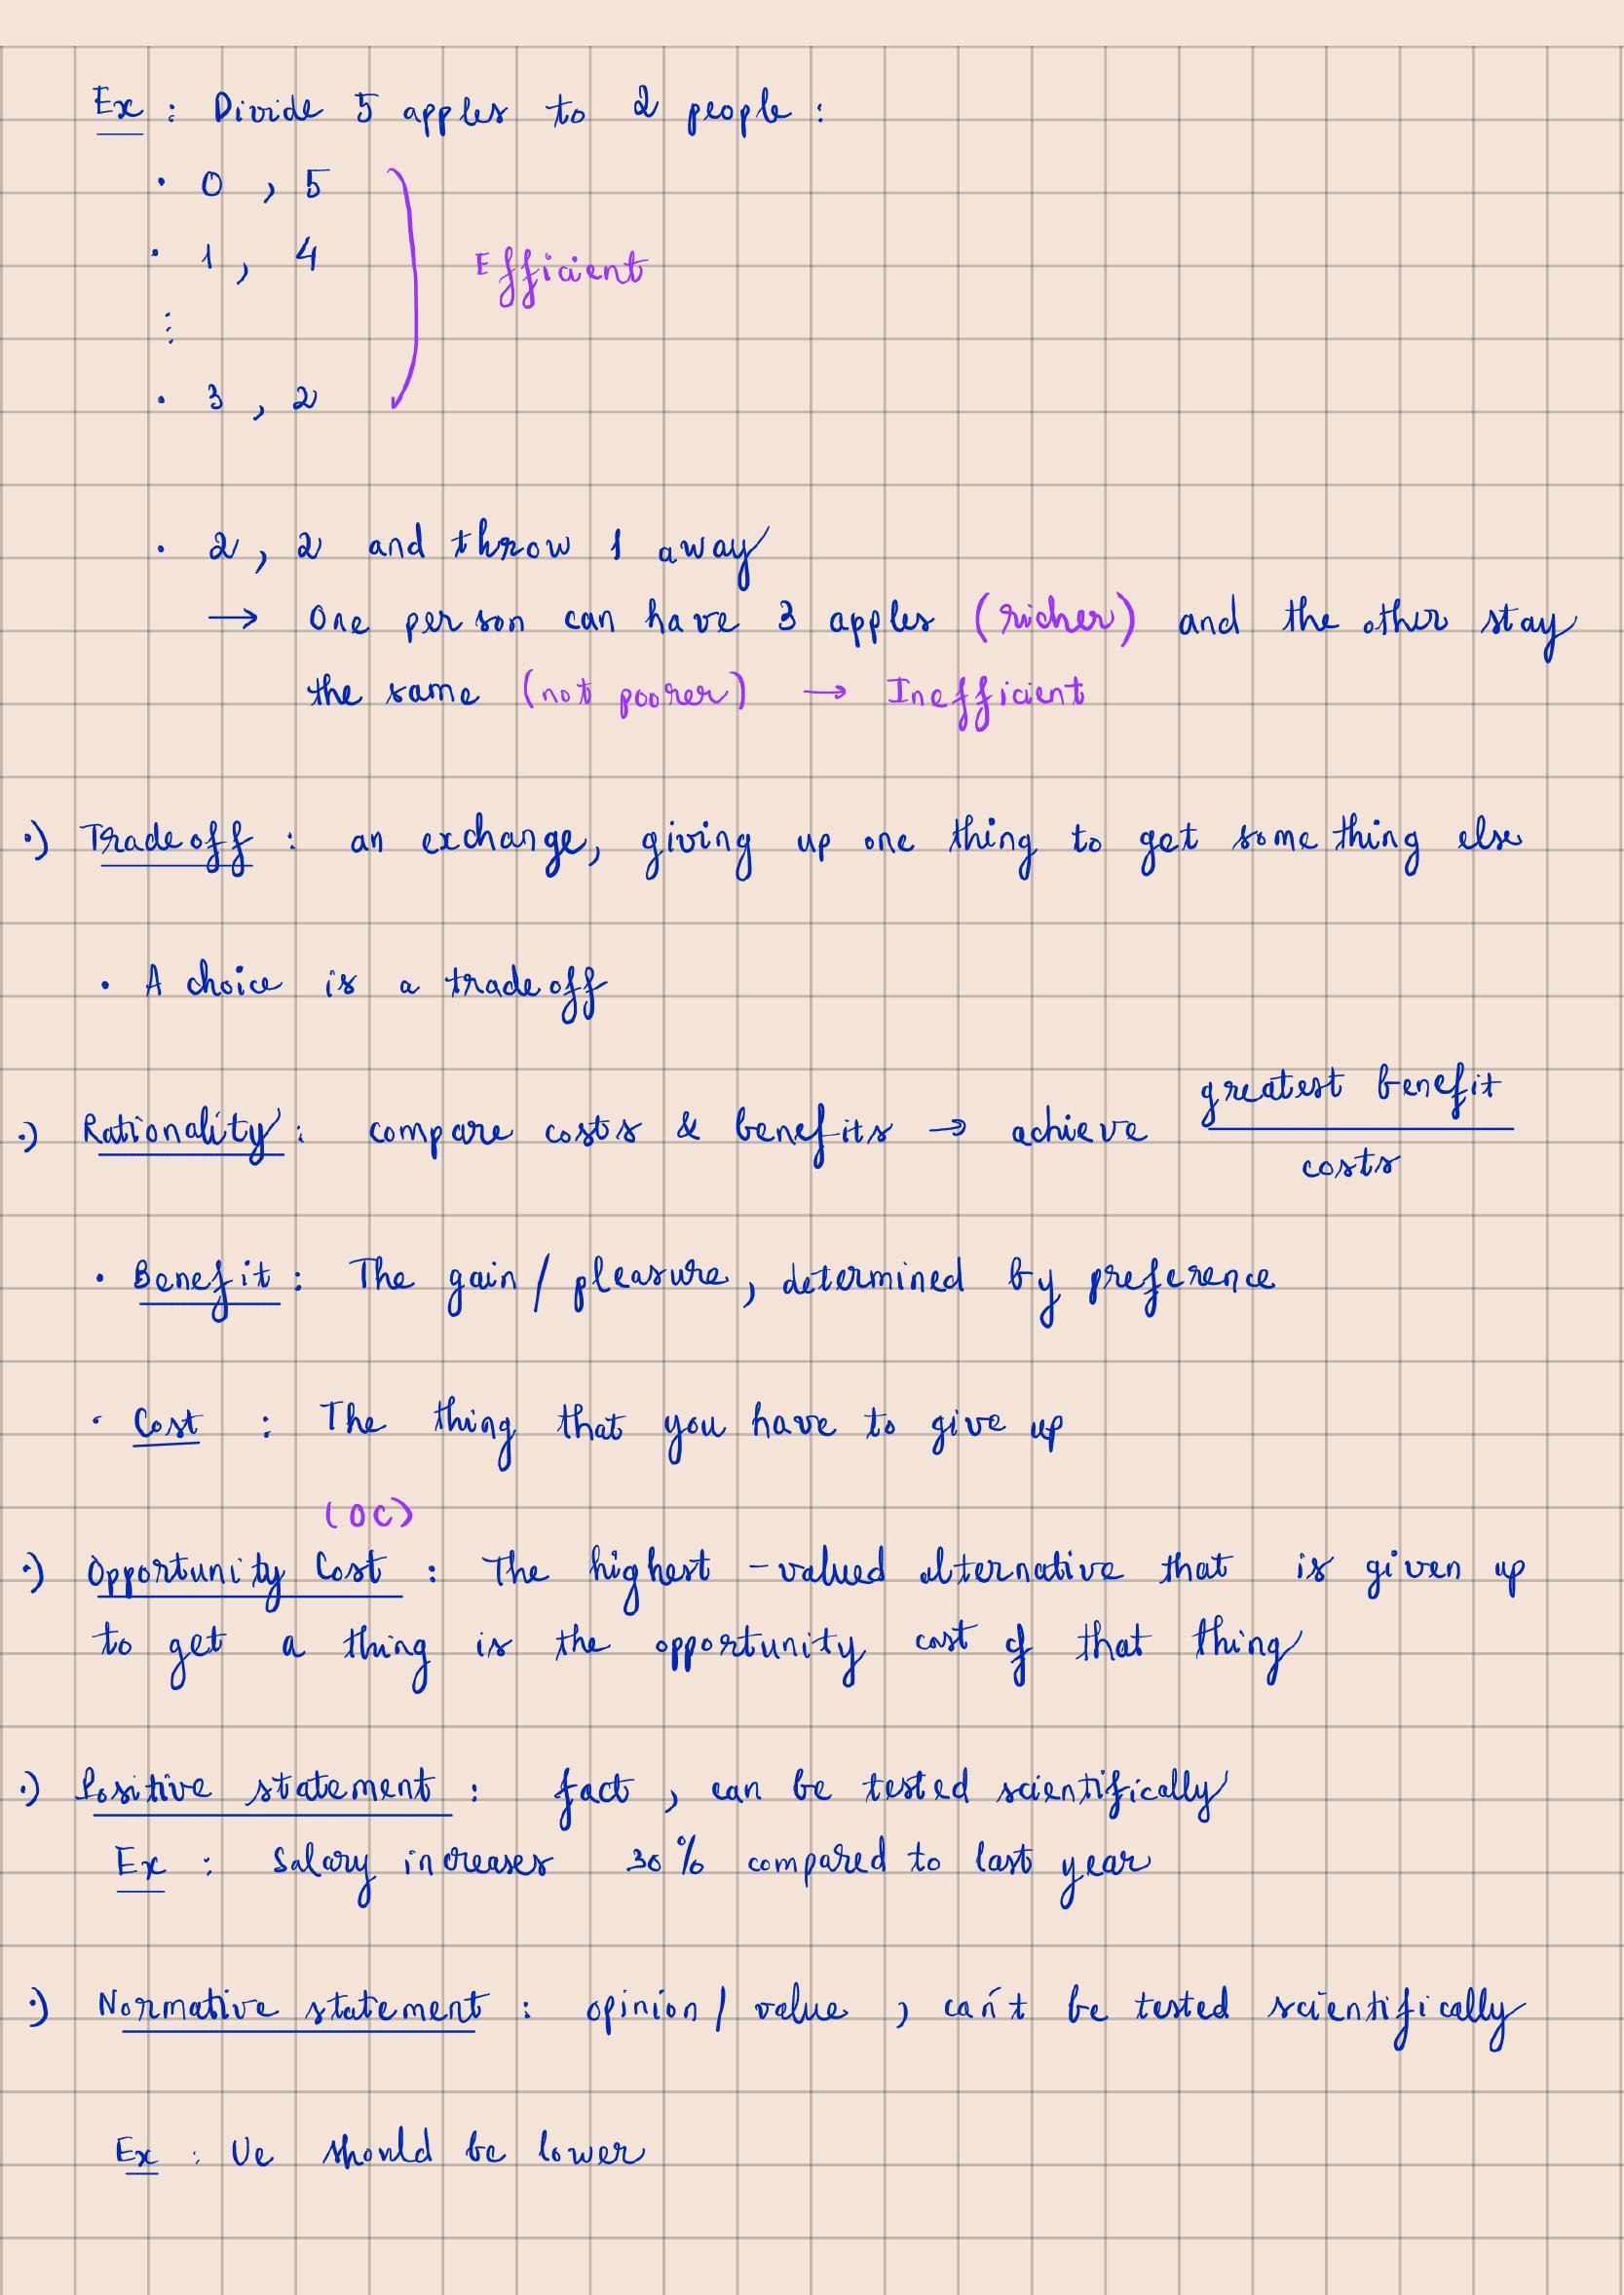 Ex : Divide 5 apples to 2 people :
• 0 , 5
• 1 , 4
Efficient
⋮
• 3 , 2
• 2 , 2 and throw 1 away
→ One person can have 3 apples (richer) and the other stay
the same (not poorer) → Inefficient
•) Tradeoff : an exchange, giving up one thing to get something else
• A choice is a tradeoff
•) Rationality : compare costs & benefits → achieve greatest benefit / costs
• Benefit : The gain / pleasure, determined by preference
• Cost : The thing that you have to give up
(OC)
•) Opportunity Cost : The highest-valued alternative that is given up
to get a thing is the opportunity cost of that thing
•) Positive statement : fact , can be tested scientifically
Ex : Salary increases 30% compared to last year
•) Normative statement : opinion / value , can't be tested scientifically
Ex : Ue should be lower